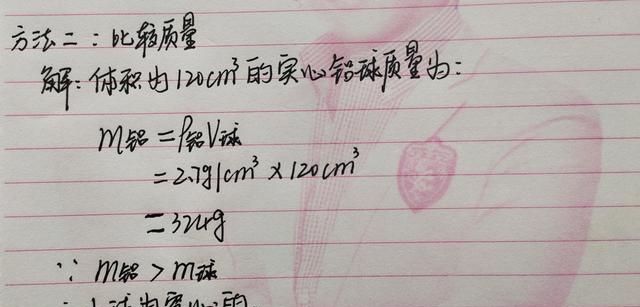 方法二：比较质量
解：体积为120cm³的实心铝球质量为：
m铝=ρ铝V球
=2.7g/cm³×120cm³
=324g
∵ m铝>m球